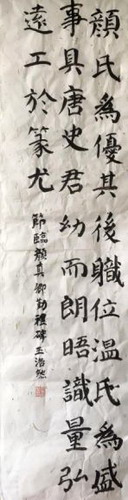 顔氏為優其後職位溫氏為盛
事具唐史君幼而朗晤識量弘
遠工於篆尤
節臨顔真卿勤禮碑王浩然